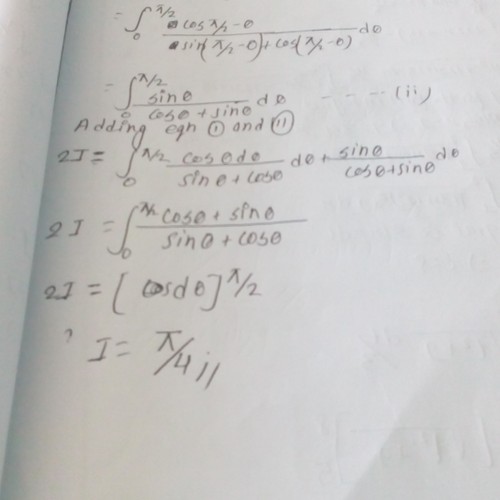 = ∫₀^π/2 cos π/2 - θ / sin(π/2 - θ) + cos(π/2 - θ) dθ
= ∫₀^π/2 sinθ / cosθ + sinθ dθ - - - - (ii)
Adding eqn ① and ⑪
2I = ∫₀^π/2 cosθ dθ / sinθ + cosθ dθ + sinθ / cosθ + sinθ dθ
2I = ∫₀^π/2 cosθ + sinθ / sinθ + cosθ
2I = [ dθ ]^π/2
I = π/4